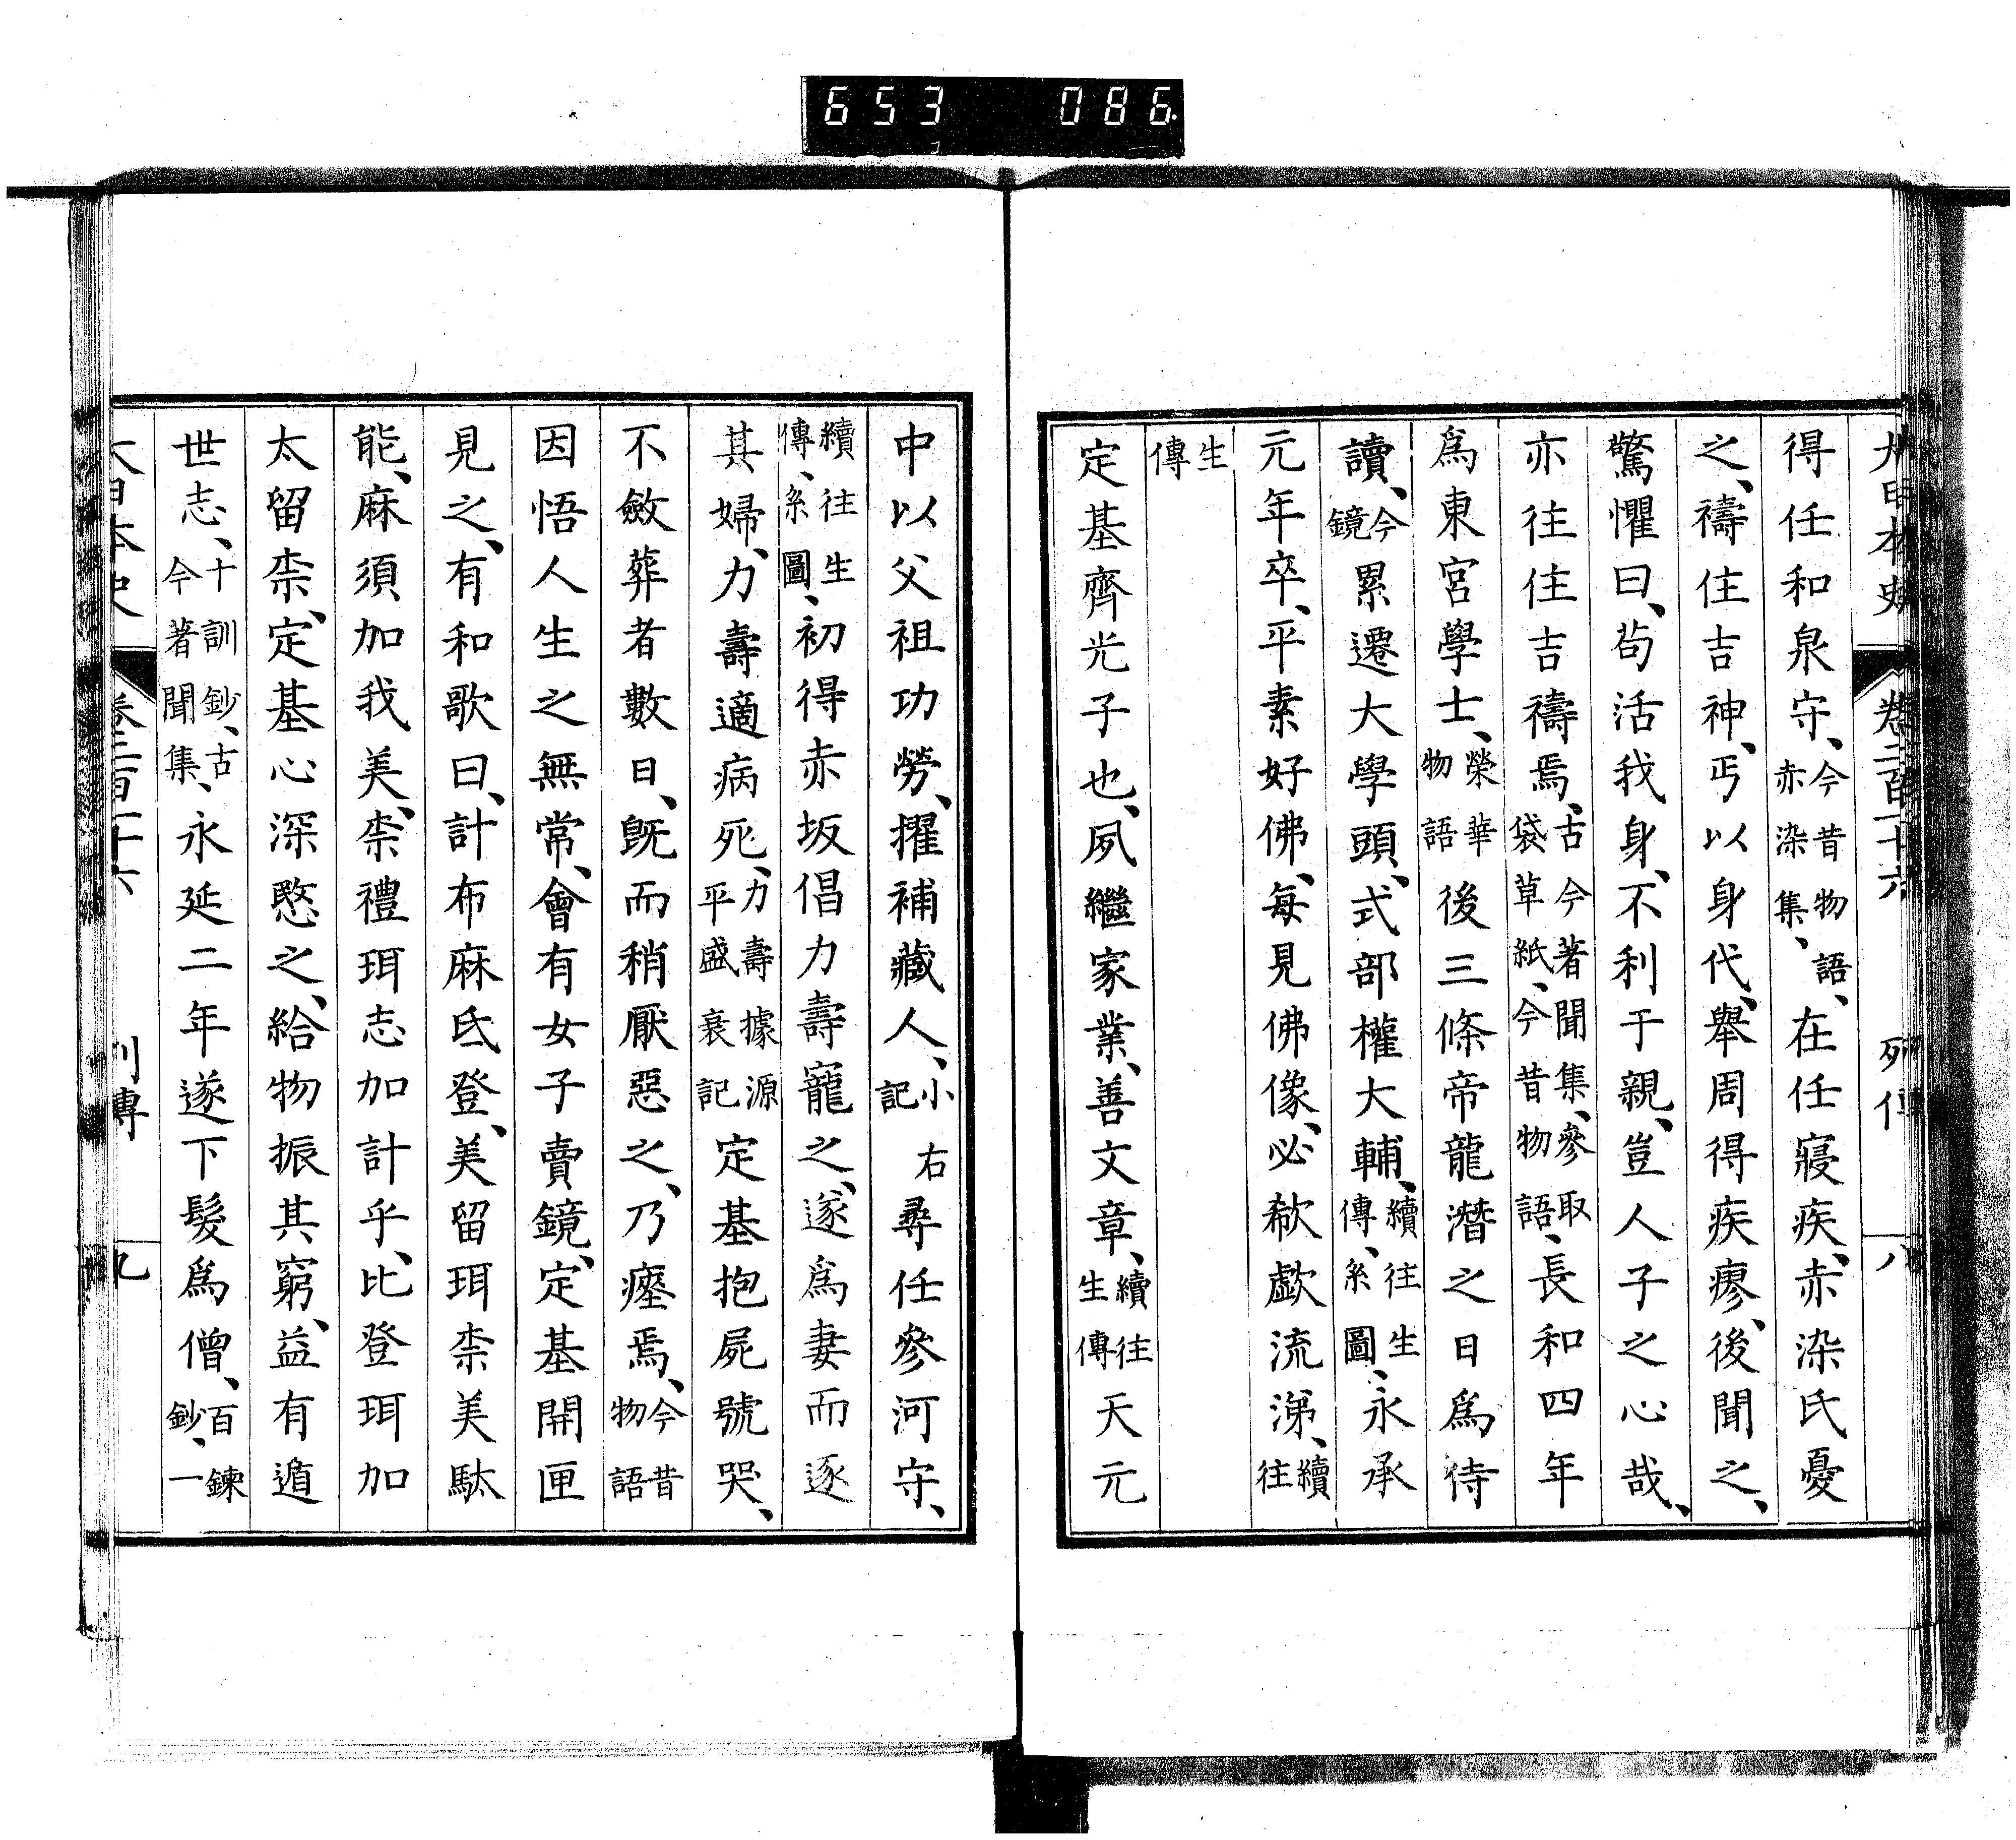 653 086
大日本史 卷二百十六 列傳 八
得任和泉守、今昔物語、赤染集、在任寢疾、赤染氏憂
之、禱住吉神、丐以身代、舉周得疾瘳、後聞之、
驚懼曰、苟活我身、不利于親、豈人子之心哉、
亦往住吉禱焉、古今著聞集、參取袋草紙、今昔物語、長和四年
爲東宮學士、榮華物語後三條帝龍潛之日爲侍
讀、今鏡累遷大學頭、式部權大輔、續往生傳、系圖、永承
元年卒、平素好佛、每見佛像、必欷歔流涕、續往
生傳
定基齊光子也、夙繼家業、善文章、續往生傳天元
中以父祖功勞、擢補藏人、小右記尋任參河守、
續往生傳、系圖、初得赤坂倡力壽寵之、遂爲妻而逐
其婦、力壽適病死、力壽據源平盛衰記定基抱屍號哭、
不斂葬者數日、既而稍厭惡之、乃瘞焉、今昔物語
因悟人生之無常、會有女子賣鏡、定基開匣
見之、有和歌曰、計布麻氐登、美留珥柰美駄
能、麻須加我美、柰禮珥志加計乎、比登珥加
太留柰、定基心深愍之、給物振其窮、益有遁
世志、十訓鈔、古今著聞集、永延二年遂下髮爲僧、百鍊鈔、一
大日本史 卷二百十六 列傳 九